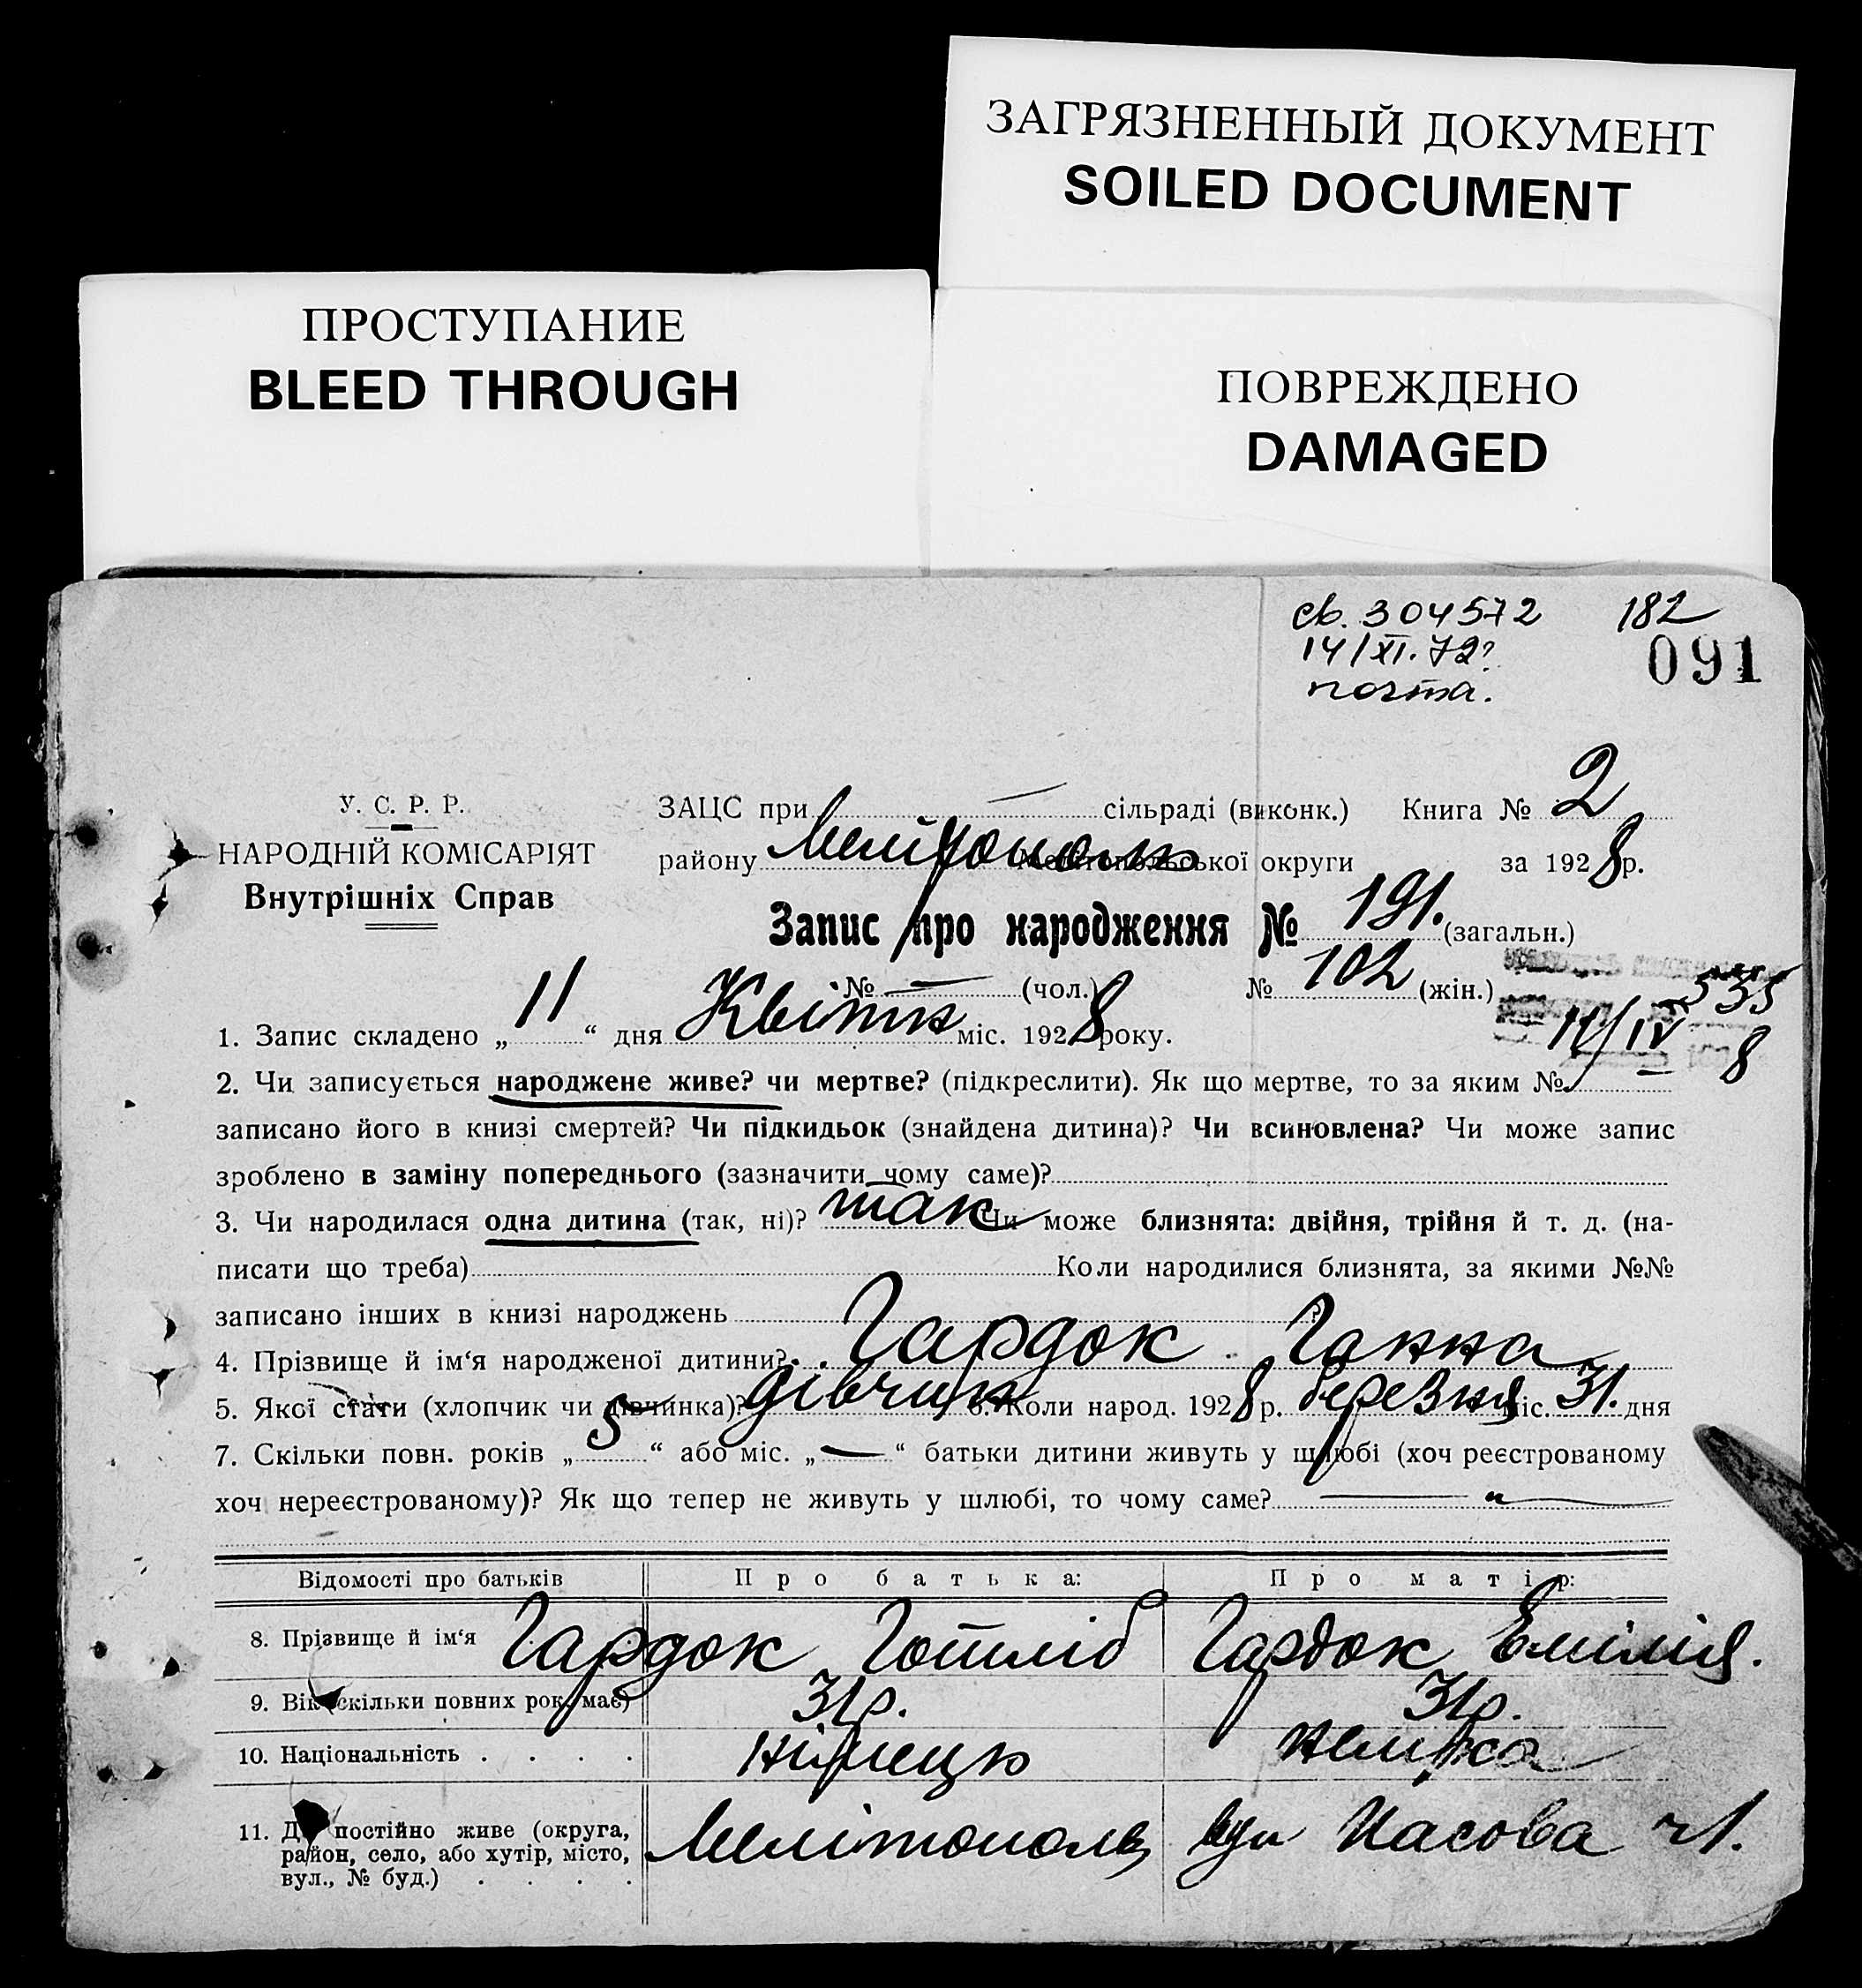 ЗАГРЯЗНЕННЫЙ ДОКУМЕНТ
SOILED DOCUMENT
ПРОСТУПАНИЕ
BLEED THROUGH
ПОВРЕЖДЕНО
DAMAGED
св. 304572 182
14/XI.72г
почта. 091
У. С. Р. Р.
НАРОДНІЙ КОМІСАРІЯТ
Внутрішніх Справ
ЗАЦС при — сільраді (виконк.) Книга № 2
району Мелітополь Мелітопольської округи за 1928 р.
Запис про народження № 191. (загальн.)
№ — (чол.) № 102 (жін.)
535
11/IV 8
1. Запис складено „11“ дня Квітня міс. 1928 року.
2. Чи записується народжене живе? чи мертве? (підкреслити). Як що мертве, то за яким № —
записано його в книзі смертей? Чи підкидьок (знайдена дитина)? Чи всиновлена? Чи може запис
зроблено в заміну попереднього (зазначити чому саме)?
3. Чи народилася одна дитина (так, ні)? так Чи може близнята: двійня, трійня й т. д. (на-
писати що треба) Коли народилися близнята, за якими №№
записано інших в книзі народжень ?
4. Прізвище й ім‘я народженої дитини? Гардок Ганна
5. Якої стати (хлопчик чи дівчинка)? дівчин 6. Коли народ. 1928 р. березня міс. 31. дня
7. Скільки повн. років „5“ або міс. „—“ батьки дитини живуть у шлюбі (хоч реєстрованому
хоч нереєстрованому)? Як що тепер не живуть у шлюбі, то чому саме? — „ —
Відомості про батьків Про батька: Про матір:
8. Прізвище й ім‘я Гардок Готліб Гардок Емілія.
9. Вік (скільки повних рок. має) 31р. 31р.
10. Національність . . . . німець німка
11. Де постійно живе (округа,
район, село, або хутір, місто,
вул., № буд.) . . . .
Мелітополь вул Часова ч 1.